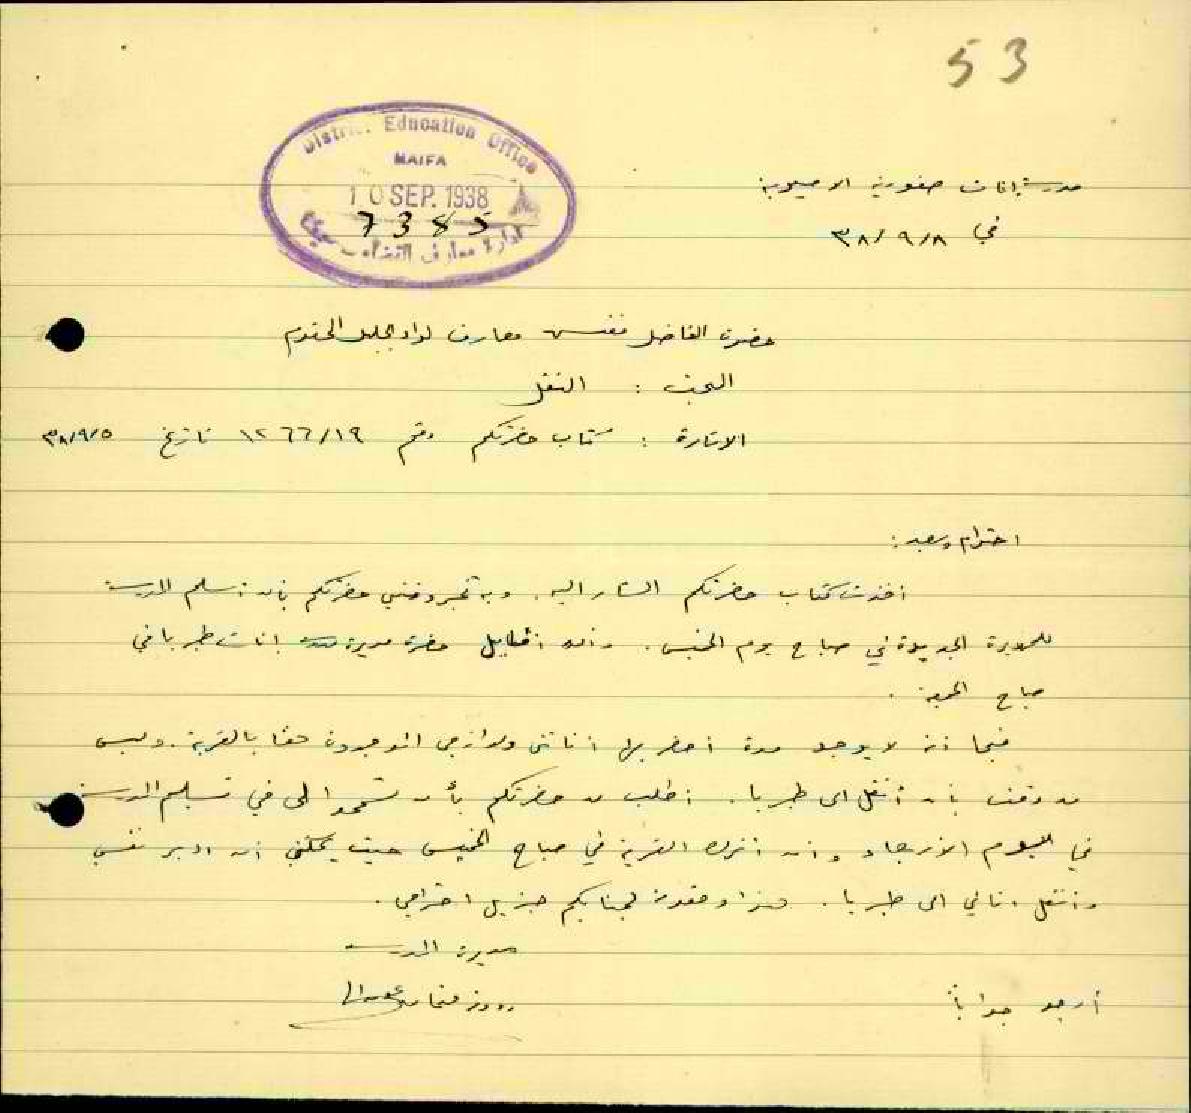 53
District Education Office
HAIFA
10 SEP. 1938
7385
ادارة معارف القضاء
مدرسة اناث صفورية الاميرية
في ٣٨/٩/٨
حضرة الفاضل مفتش معارف لواء الجليل المحترم
البحث : النقل
الاشارة : كتاب حضرتكم رقم ١٢٦٦/١٩ تاريخ ٣٨/٩/٥
احترام وبعد :
أخذت كتاب حضرتكم المشار اليه. وبه حضرتكم بان اسلم المدرسة
للمديرة الجديدة في صباح يوم الخميس. وان اقابل حضرة مديرة مدرسة اناث طبريا في
صباح الجمعة .
فبما انه لا يوجد مدة احضر بها اثاثي ولوازمي الموجودة حقا بالقرية. وليس
من وقت بان انتقل الى طبريا. اطلب من حضرتكم بأن تسمحوا لي في تسليم المدرسة
في اليوم الأربعاء وان اترك القرية في صباح الخميس حيث يمكنني ان ادبر نفسي
وانتقل الى طبريا. هذا لجنابكم جزيل احترامي.
مديرة المدرسة
أرجو جواباً